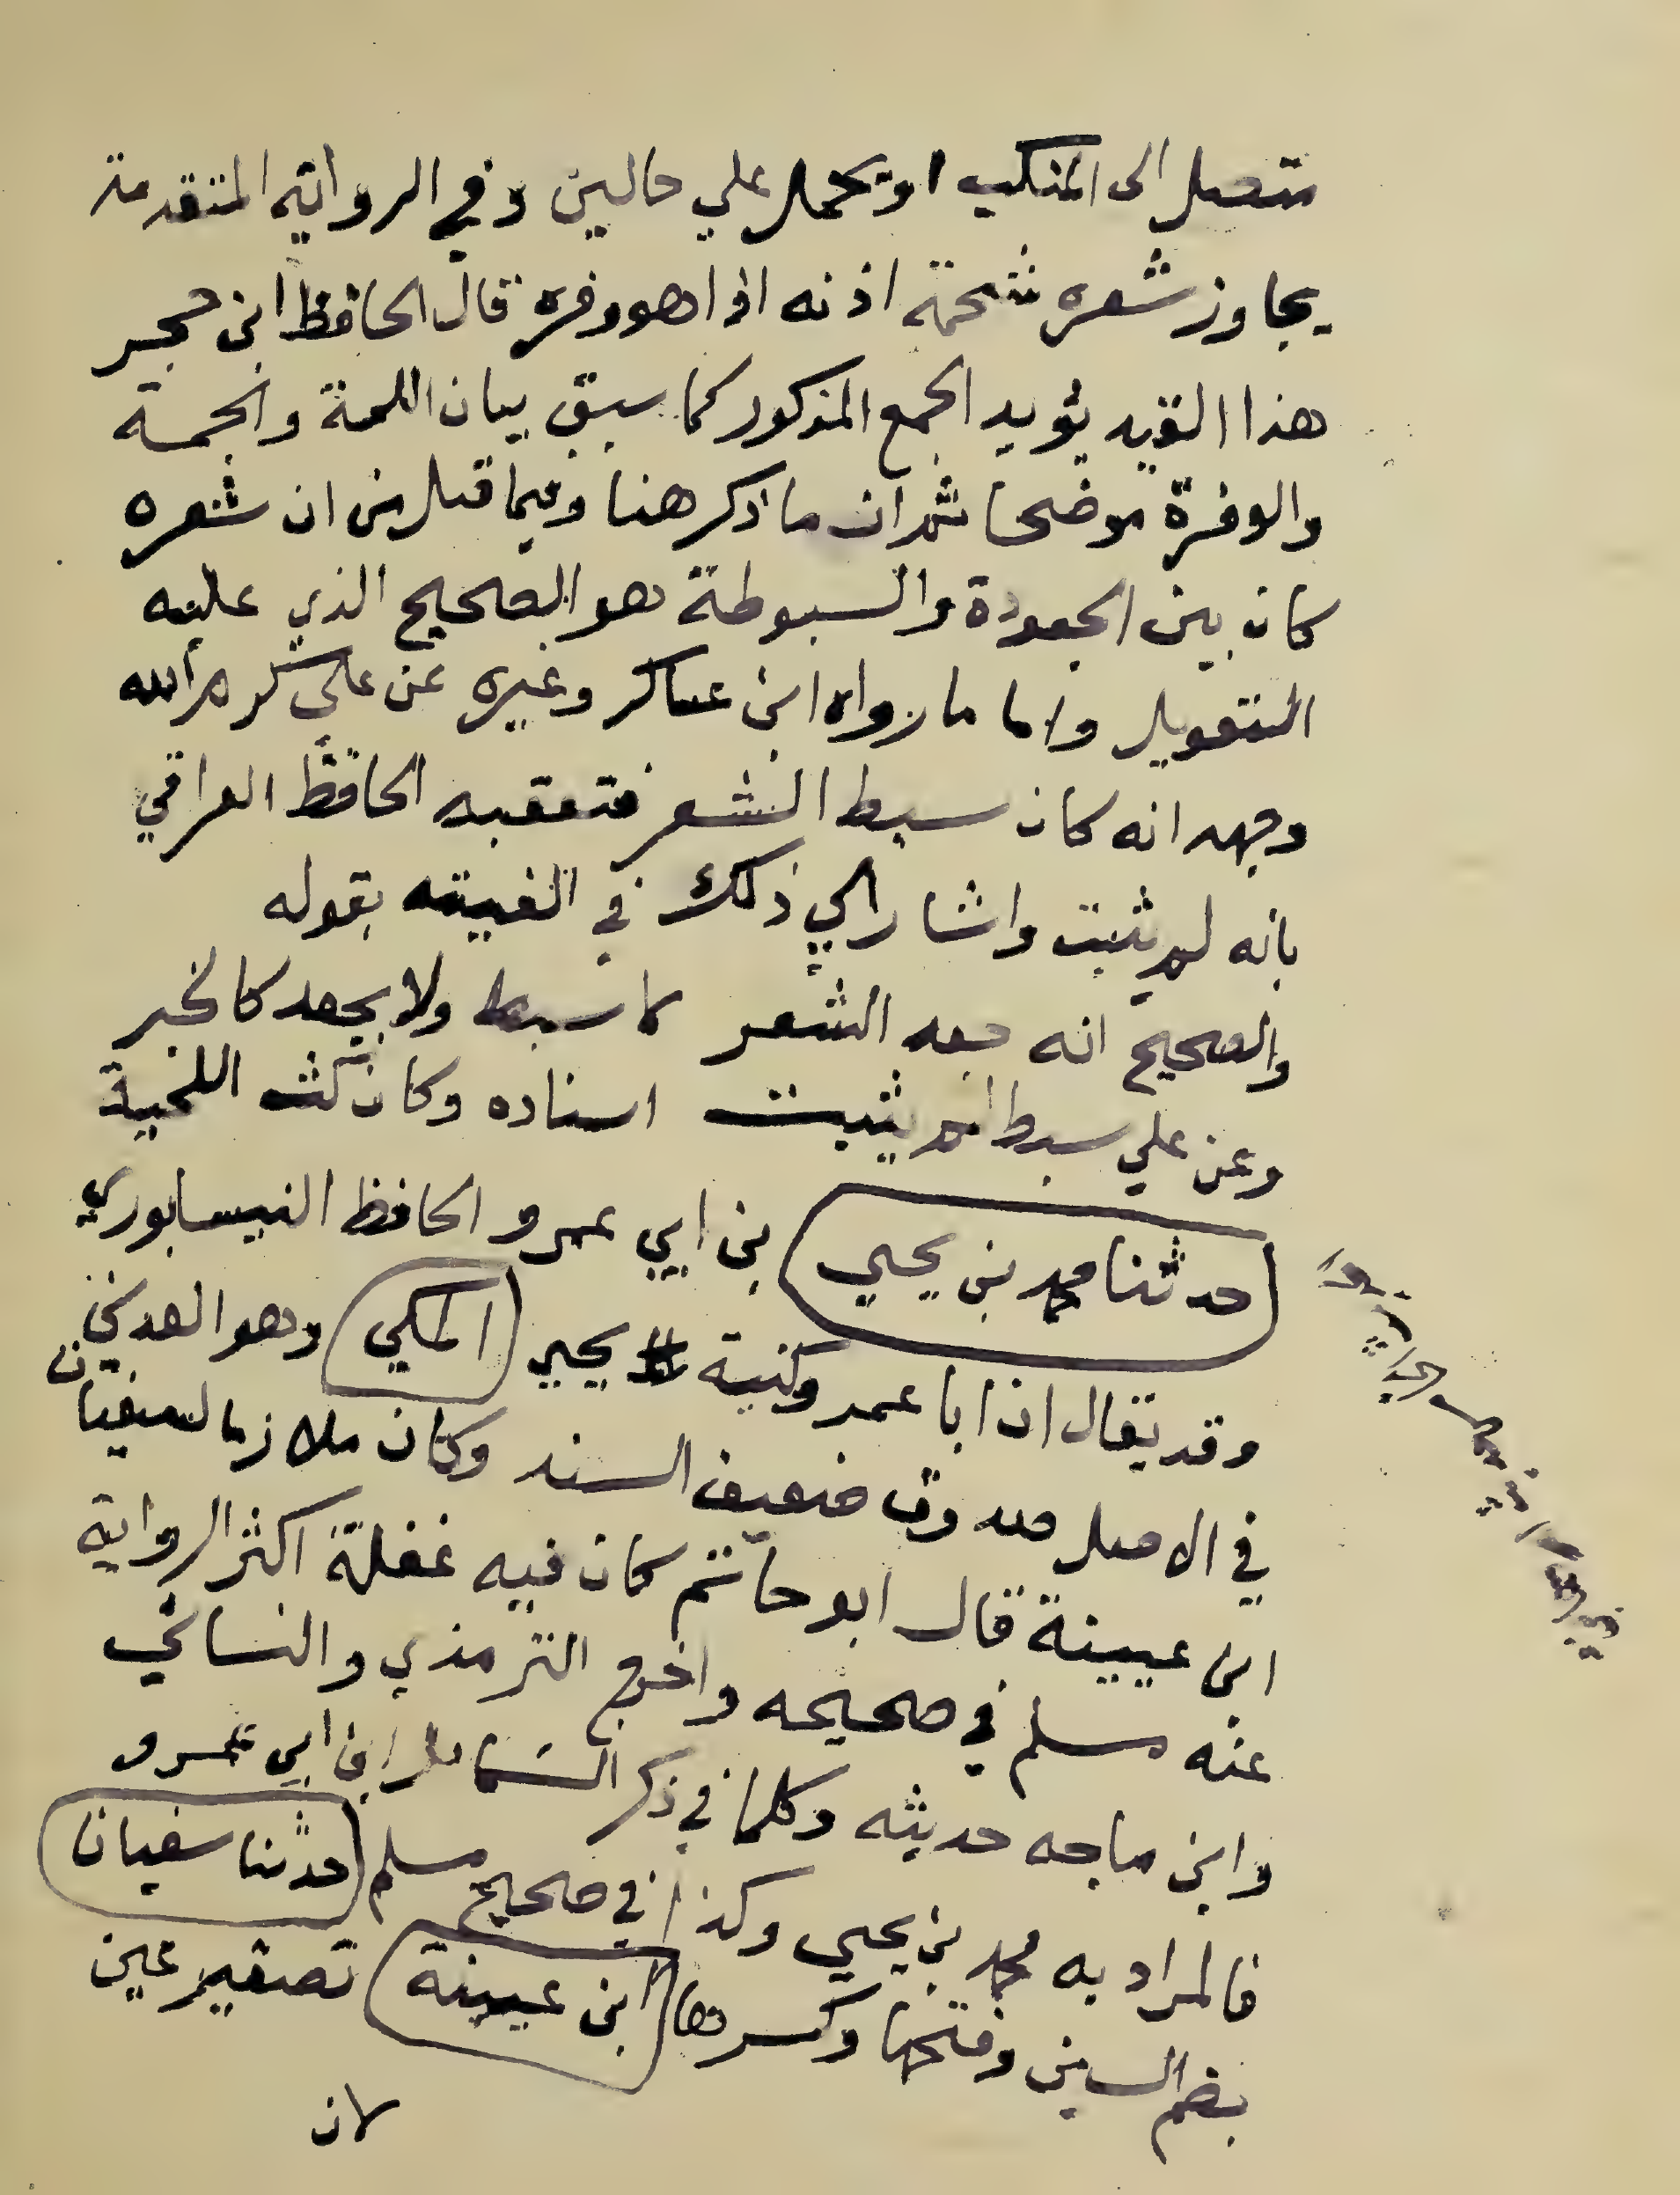 متصل الى المنكب او يحمل علي حالين وفي الرواية المتقدمة
يجاوز شعره شحمة اذنه اذا هو وفره قال الحافظ ابن حجر
هذا القيد يؤيد الجمع المذكور كما سبق بيان اللمة والجمة
والوفرة موضحا ثم ان ما ذكر هنا وفيما قبل من ان شعره
كان بين الجعودة والسبوطة هو الصحيح الذي عليه
التعويل واما ما رواه ابن عساكر وغيره عن علي كرم الله
وجهه انه كان سبط الشعر فتعقبه الحافظ العراقي
بانه لم يثبت واشار الي ذلك في الفيته بقوله
والصحيح انه جعد الشعر لا سبط ولا بجعد كالخبر
وعن علي سبط لم يثبت اسناده وكان كث اللحية
حدثنا محمد بن يحيي بن ابي عمرو الحافظ النيسابوري
وقد يقال ان ابا عمر وكنية يحيي المكي وهو العدني
في الاصل صدوق ضعيف السند وكان ملازما لسفيان بن
ابن عيينة قال ابو حاتم كان فيه غفلة اكثر الرواية
عنه مسلم في صحيحه واخرج الترمذي والنسائي
وابن ماجه حديثه وكلما في ذكر الشمائل ابن ابي عمرو
فالمراد به محمد بن يحيي وكذا في صحيح مسلم حدثنا سفيان
بضم السين وفتحها وكسرها ابن عيينة تصغير عين
لان